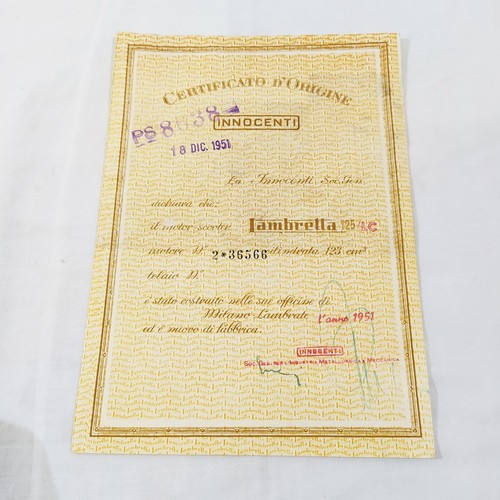 CERTIFICATO D'ORIGINE
INNOCENTI
PS 8038
18 DIC. 1951
La Innocenti Soc. Gen
dichiara che:
il motor scooter Lambretta 125 LC
motore N° 2*36566 cilindrata 123 cm³
telaio N°
è stato costruito nelle sue officine di
Milano Lambrate l'anno 1951
ed è nuovo di fabbrica.
INNOCENTI
SOC. GENERALE INDUSTRIA METALLURGICA E MECCANICA